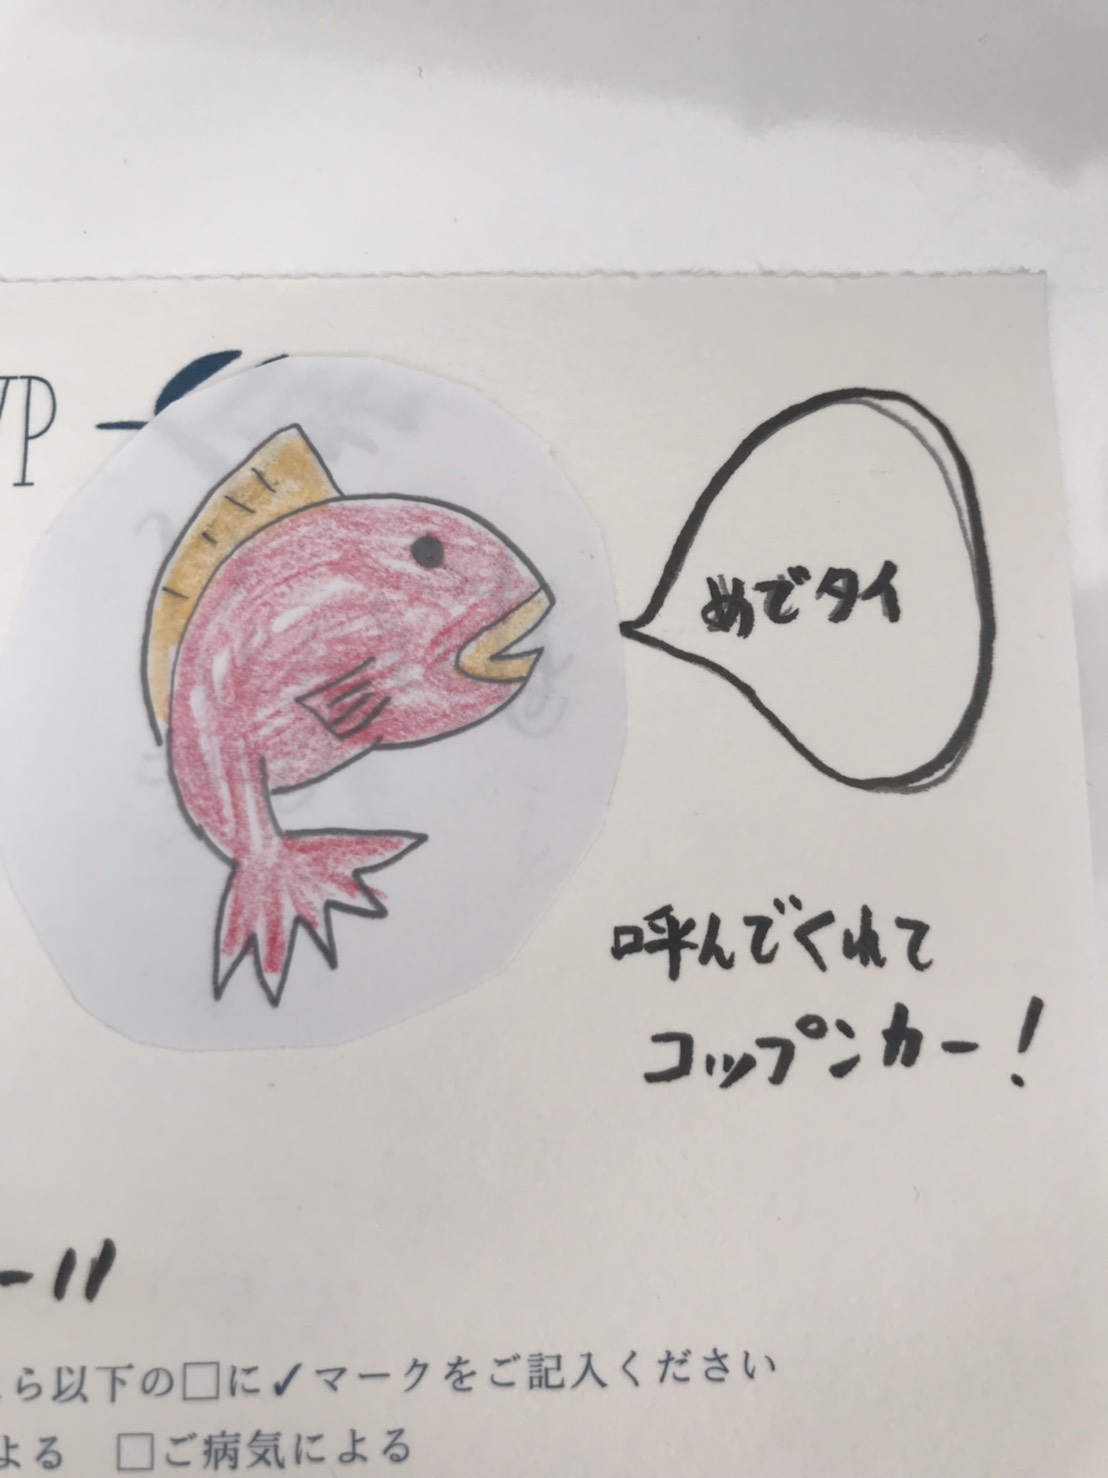 VP
めでタイ
呼んでくれて
コップンカー!
ー!!
ら以下の□に✓マークをご記入ください
よる □ご病気による